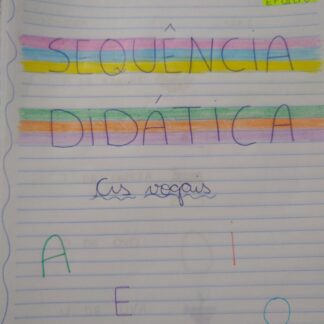 SEQUÊNCIA
DIDÁTICA
As vogais
A I
E O